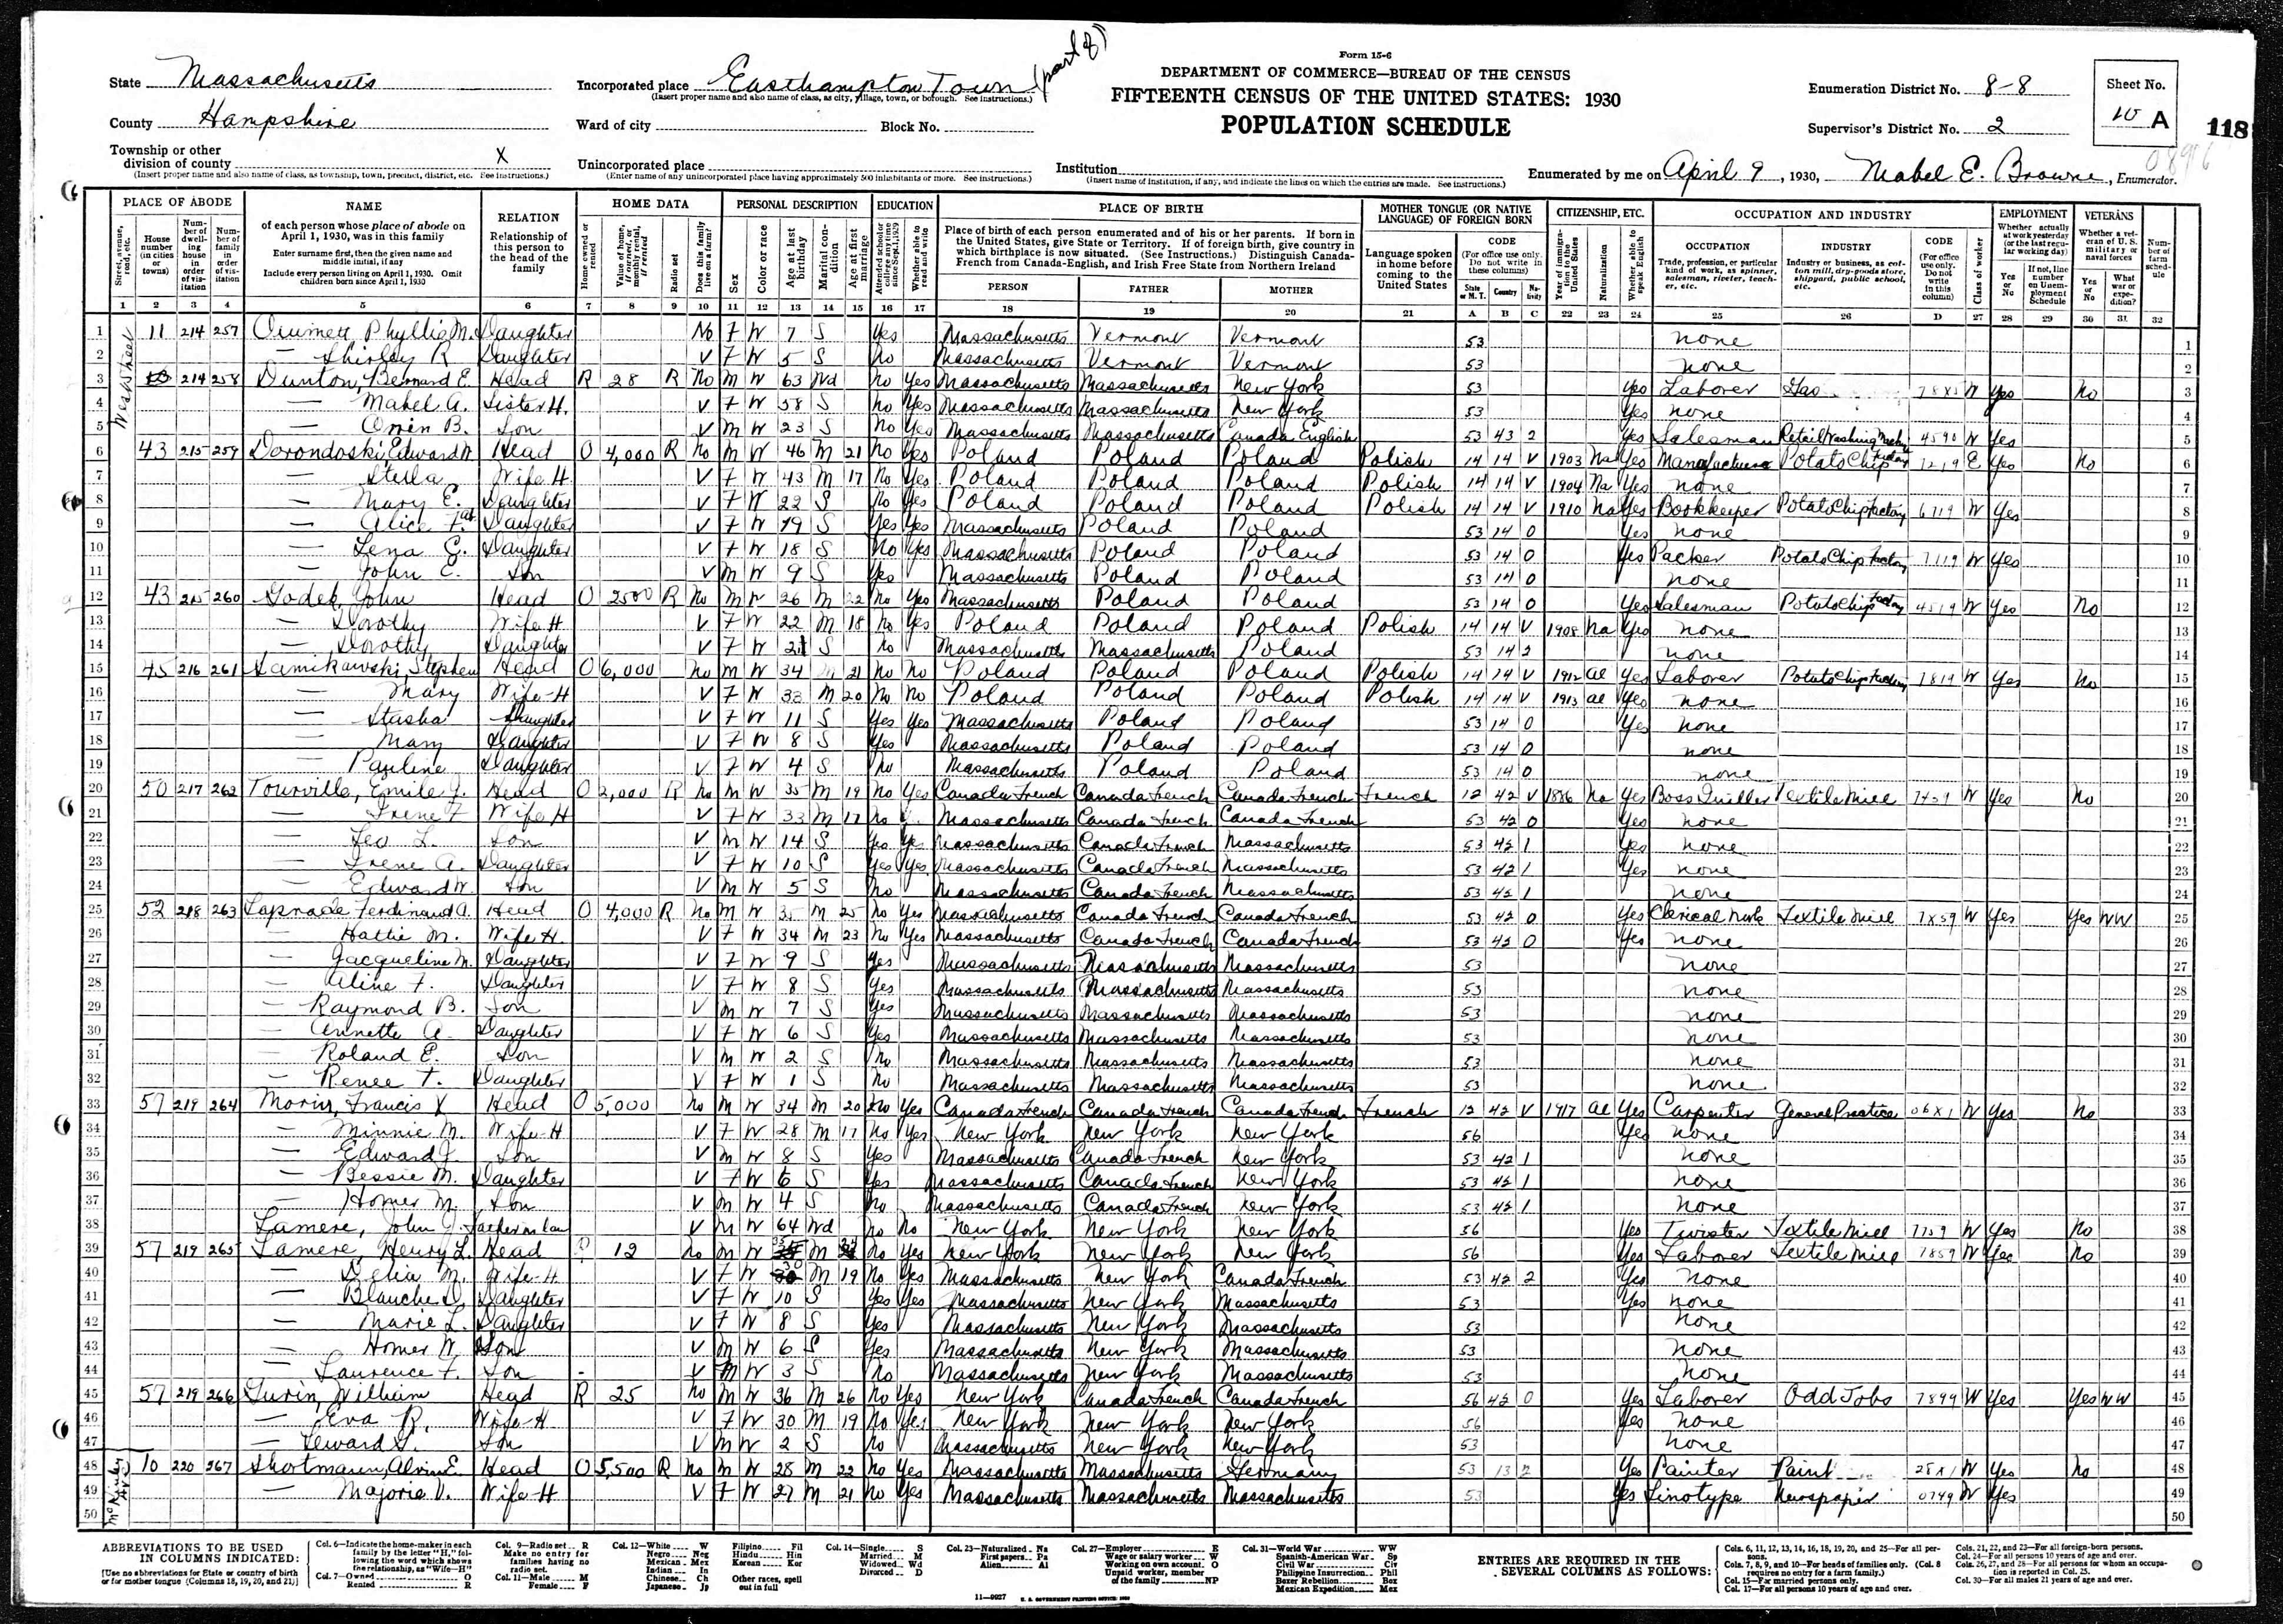 Form 15-6
DEPARTMENT OF COMMERCE—BUREAU OF THE CENSUS
FIFTEENTH CENSUS OF THE UNITED STATES: 1930
POPULATION SCHEDULE
State Massachusetts
County Hampshire
Township or other division of county X
(Insert proper name and also name of class, as township, town, precinct, district, etc. See instructions.)
Incorporated place Easthampton Town (part of)
(Insert proper name and also name of class, as city, village, town, or borough. See instructions.)
Ward of city
Block No.
Unincorporated place
(Enter name of any unincorporated place having approximately 500 inhabitants or more. See instructions.)
Institution
(Insert name of institution, if any, and indicate the lines on which the entries are made. See instructions.)
Enumeration District No. 8-8
Supervisor's District No. 2
Sheet No.
10 A
118
Enumerated by me on April 9, 1930, Mabel E. Browne, Enumerator.
PLACE OF ABODE
NAME
of each person whose place of abode on April 1, 1930, was in this family
Enter surname first, then the given name and middle initial, if any
Include every person living on April 1, 1930. Omit children born since April 1, 1930
RELATION
Relationship of this person to the head of the family
HOME DATA
PERSONAL DESCRIPTION
EDUCATION
PLACE OF BIRTH
Place of birth of each person enumerated and of his or her parents. If born in the United States, give State or Territory. If of foreign birth, give country in which birthplace is now situated. (See Instructions.) Distinguish Canada-French from Canada-English, and Irish Free State from Northern Ireland
PERSON FATHER MOTHER
MOTHER TONGUE (OR NATIVE LANGUAGE) OF FOREIGN BORN
Language spoken in home before coming to the United States
CODE
CITIZENSHIP, ETC.
OCCUPATION AND INDUSTRY
OCCUPATION INDUSTRY CODE
EMPLOYMENT
VETERANS
1 11 214 257 Phyllis M. Daughter No F W 7 S Yes Massachusetts Vermont Vermont 53 none 1
2 — Shirley R Daughter V F W 5 S No Massachusetts Vermont Vermont 53 none 2
3 214 258 Dunton, Bernard E. Head R 28 R No M W 63 Wd No Yes Massachusetts Massachusetts New York 53 Yes Laborer Gas W Yes No 3
4 — Mabel A. Sister H. V F W 58 S No Yes Massachusetts Massachusetts New York 53 Yes none 4
5 — Orrin B. Son V M W 23 S No Yes Massachusetts Massachusetts Canada English 53 43 2 Yes Salesman Retail Washing 4590 W Yes 5
6 43 215 259 Dorondoski, Edward W Head O 4,000 R No M W 46 M 21 No Yes Poland Poland Poland Polish 14 14 V 1903 Na Yes Manufacturer Potato Chip Factory 7219 E Yes No 6
7 — Stella Wife H V F W 43 M 17 No Yes Poland Poland Poland Polish 14 14 V 1904 Na Yes none 7
8 — Mary E. Daughter V F W 22 S No Yes Poland Poland Poland Polish 14 14 V 1910 Na Yes Bookkeeper Potato Chip Factory 6719 W Yes 8
9 — Alice F. Daughter V F W 19 S Yes Yes Massachusetts Poland Poland 53 14 0 Yes none 9
10 — Lena G. Daughter V F W 18 S No Yes Massachusetts Poland Poland 53 14 0 Yes Packer Potato Chip Factory 7119 W Yes 10
11 — John E. Son V M W 9 S Yes Massachusetts Poland Poland 53 14 0 none 11
12 43 215 260 Godek, John Head O 2500 R No M W 26 M 22 No Yes Massachusetts Poland Poland 53 14 0 Yes Salesman Potato Chip Factory 4519 W Yes No 12
13 — Dorothy Wife H V F W 22 M 18 No Yes Poland Poland Poland Polish 14 14 V 1908 Na Yes none 13
14 — Dorothy Daughter V F W S No Massachusetts Massachusetts Poland 53 14 2 none 14
15 45 216 261 Samikawski, Stephen Head O 6,000 No M W 34 M 21 No No Poland Poland Poland Polish 14 14 V 1912 Al Yes Laborer Potato Chip Factory 7819 W Yes No 15
16 — Mary Wife-H V F W 33 M 20 No No Poland Poland Poland Polish 14 14 V 1913 Al Yes none 16
17 — Stasha Daughter V F W 11 S Yes Yes Massachusetts Poland Poland 53 14 0 Yes none 17
18 — Mary Daughter V F W 8 S Yes Massachusetts Poland Poland 53 14 0 none 18
19 — Pauline Daughter V F W 4 S No Massachusetts Poland Poland 53 14 0 none 19
20 50 217 262 Tourville, Emile J. Head O 2,000 R No M W 35 M 19 No Yes Canada French Canada French Canada French French 12 42 V 1886 Na Yes Boss Quiller Textile Mill 7459 W Yes No 20
21 — Irene F Wife H V F W 33 M 17 No Massachusetts Canada French Canada French 53 42 0 Yes none 21
22 — Leo L. Son V M W 14 S Yes Yes Massachusetts Canada French Massachusetts 53 42 1 Yes none 22
23 — Irene A. Daughter V F W 10 S Yes Yes Massachusetts Canada French Massachusetts 53 42 1 Yes none 23
24 — Edward W. Son V M W 5 S No Massachusetts Canada French Massachusetts 53 42 1 none 24
25 52 218 263 Laprade, Ferdinand A. Head O 4,000 R No M W 35 M 25 No Yes Massachusetts Canada French Canada French 53 42 0 Yes Clerical Work Textile Mill 7X59 W Yes Yes WW 25
26 — Hattie M. Wife H. V F W 34 M 23 No Yes Massachusetts Canada French Canada French 53 42 0 Yes none 26
27 — Jacqueline M. Daughter V F W 9 S Yes Massachusetts Massachusetts Massachusetts 53 none 27
28 — Aline F. Daughter V F W 8 S Yes Massachusetts Massachusetts Massachusetts 53 none 28
29 — Raymond B. Son V M W 7 S Yes Massachusetts Massachusetts Massachusetts 53 none 29
30 — Annette A. Daughter V F W 6 S Yes Massachusetts Massachusetts Massachusetts 53 none 30
31 — Roland E. Son V M W 2 S No Massachusetts Massachusetts Massachusetts 53 none 31
32 — Renee T. Daughter V F W 1 S No Massachusetts Massachusetts Massachusetts 53 none 32
33 57 219 264 Morin, Francis X Head O 5,000 No M W 34 M 20 No Yes Canada French Canada French Canada French French 12 42 V 1917 Al Yes Carpenter General Practice 06X1 W Yes No 33
34 — Minnie M. Wife-H V F W 28 M 17 No Yes New York New York New York 56 Yes none 34
35 — Edward J. Son V M W 8 S Yes Massachusetts Canada French New York 53 42 1 none 35
36 — Bessie M. Daughter V F W 6 S Yes Massachusetts Canada French New York 53 42 1 none 36
37 — Homer M. Son V M W 4 S No Massachusetts Canada French New York 53 42 1 none 37
38 Lamere, John J. Father in law V M W 64 Wd No No New York New York New York 56 Yes Twister Textile Mill 7759 W Yes No 38
39 57 219 265 Lamere, Henry L. Head R 12 No M W 35 M No Yes New York New York New York 56 Yes Laborer Textile Mill 7859 W Yes No 39
40 — Delia M. Wife-H V F W 30 M 19 No Yes Massachusetts New York Canada French 53 42 2 Yes none 40
41 — Blanche D. Daughter V F W 10 S Yes Yes Massachusetts New York Massachusetts 53 Yes none 41
42 — Marie L. Daughter V F W 8 S Yes Massachusetts New York Massachusetts 53 none 42
43 — Homer W. Son V M W 6 S Yes Massachusetts New York Massachusetts 53 none 43
44 — Laurence F. Son V M W 3 S No Massachusetts New York Massachusetts 53 none 44
45 57 219 266 William Head R 25 No M W 36 M 26 No Yes New York Canada French Canada French 56 42 0 Yes Laborer Odd Jobs 7899 W Yes Yes WW 45
46 — Eva R. Wife-H V F W 30 M 19 No Yes New York New York New York 56 Yes none 46
47 — Son V M W 2 S No Massachusetts New York New York 53 none 47
48 10 220 267 Shortmann, Alvin E. Head O 5,500 R No M W 28 M 22 No Yes Massachusetts Massachusetts Germany 53 13 2 Yes Painter Paint W Yes No 48
49 — Majorie V. Wife-H V F W 27 M 21 No Yes Massachusetts Massachusetts Massachusetts 53 Yes Linotype Newspaper 0749 W Yes 49
50 50
ABBREVIATIONS TO BE USED IN COLUMNS INDICATED:
[Use no abbreviations for State or country of birth or for mother tongue (Columns 18, 19, 20, and 21)]
Col. 6—Indicate the home-maker in each family by the letter "H," following the word which shows the relationship, as "Wife—H"
Col. 7—Owned O
Rented R
Col. 9—Radio set R
Make no entry for families having no radio set.
Col. 11—Male M
Female F
Col. 12—White W
Negro Neg
Mexican Mex
Indian In
Chinese Ch
Japanese Jp
Filipino Fil
Hindu Hin
Korean Kor
Other races, spell out in full
Col. 14—Single S
Married M
Widowed Wd
Divorced D
Col. 23—Naturalized Na
First papers Pa
Alien Al
Col. 27—Employer E
Wage or salary worker W
Working on own account O
Unpaid worker, member of the family NP
Col. 31—World War WW
Spanish-American War Sp
Civil War Civ
Philippine Insurrection Phil
Boxer Rebellion Box
Mexican Expedition Mex
ENTRIES ARE REQUIRED IN THE SEVERAL COLUMNS AS FOLLOWS:
Cols. 6, 11, 12, 13, 14, 16, 18, 19, 20, and 25—For all persons.
Cols. 7, 8, 9, and 10—For heads of families only. (Col. 8 requires no entry for a farm family.)
Col. 15—For married persons only.
Col. 17—For all persons 10 years of age and over.
Cols. 21, 22, and 23—For all foreign-born persons.
Col. 24—For all persons 10 years of age and over.
Cols. 26, 27, and 28—For all persons for whom an occupation is reported in Col. 25.
Col. 30—For all males 21 years of age and over.
11—9927
U. S. GOVERNMENT PRINTING OFFICE: 1930